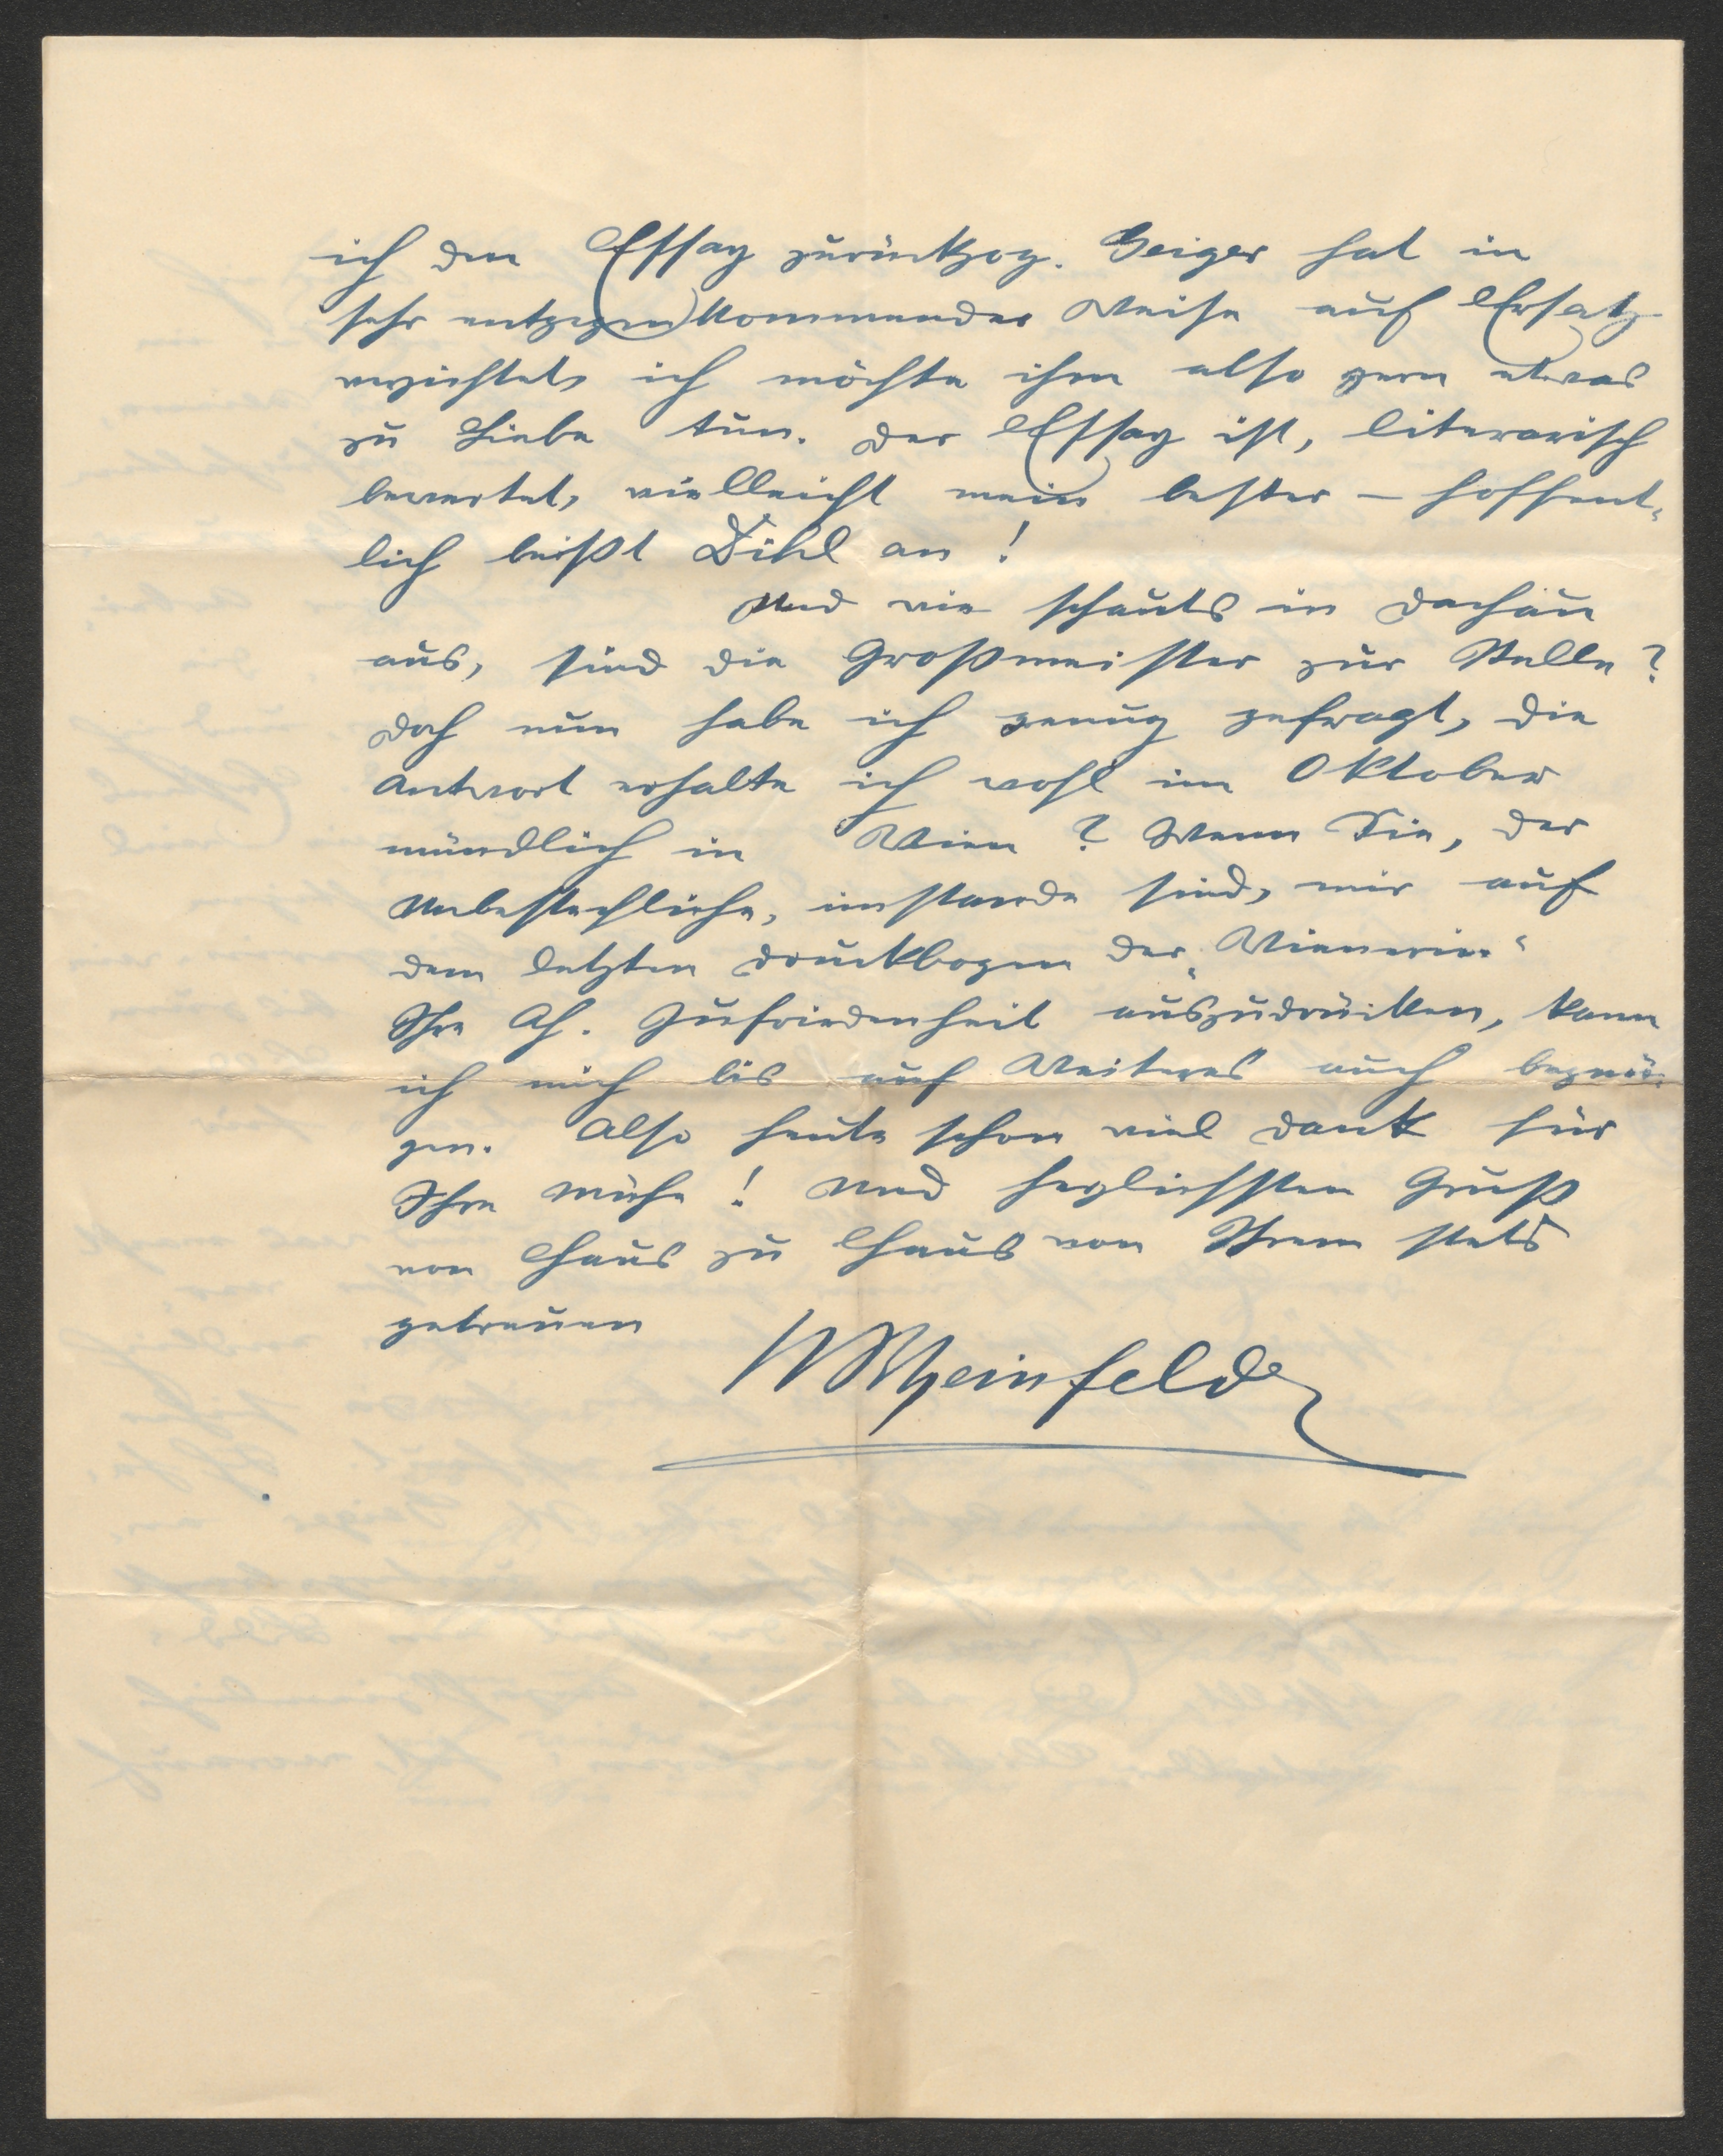 ich den Essay zurückzog. Geiger hat in
sehr entgegenkommender Weise auf Ersatz
verzichtet, ich möchte ihm also gern etwas
zu Liebe tun. Der Essay ist, literarisch
bewertet, vielleicht mein bester – hoffent-
lich beißt Dihl an!
Und wie schauts in Dachau
aus, sind die Großmeister zur Stelle?
Doch nun habe ich genug gefragt, die
Antwort erhalte ich wohl im Oktober
mündlich in Wien? Wenn Sie, der
Unbestechliche, imstande sind, mir auf
dem letzten Druckbogen der „Wienerin“
Ihre Ah. Zufriedenheit auszudrücken, kann
ich mich bis auf Weiteres auch begnü-
gen. Also heute schon viel Dank für
Ihre Mühe! Und herzlichsten Gruß
von Haus zu Haus von Ihrem stets
getreuen